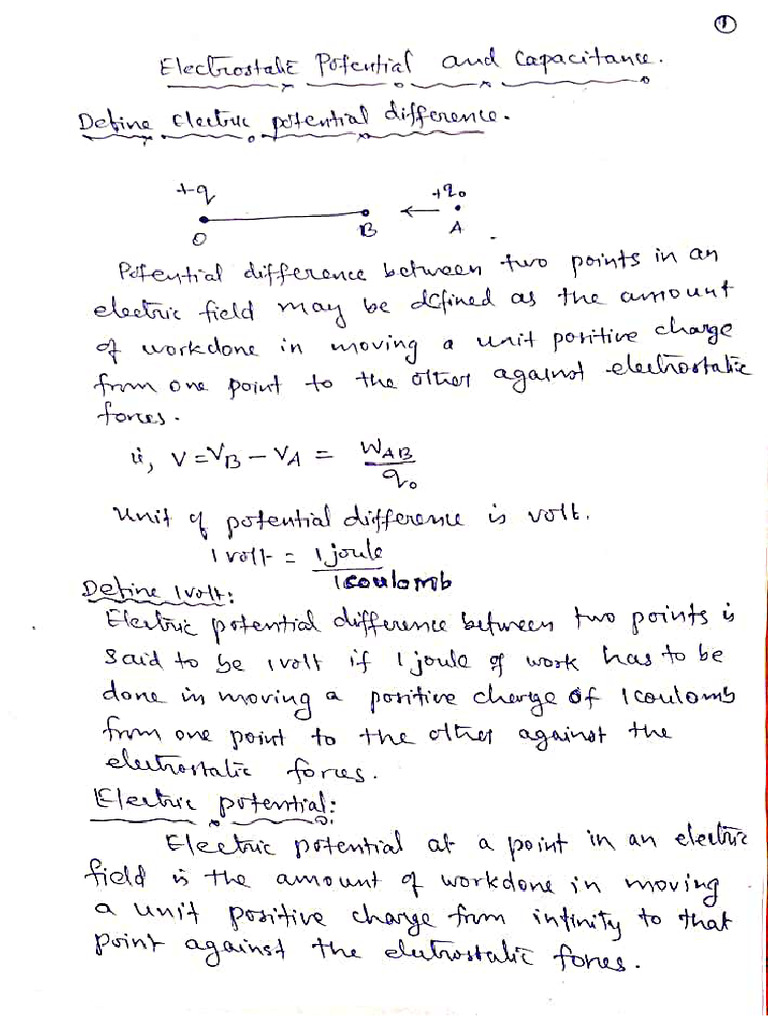 1
Electrostatic Potential and Capacitance.
Define electric potential difference.
+q +q₀
O B A
Potential difference between two points in an
electric field may be defined as the amount
of workdone in moving a unit positive charge
from one point to the other against electrostatic
forces.
ii, V = V_B - V_A = W_AB / q₀
Unit of potential difference is volt.
1 volt = 1 joule / 1 coulomb
Define 1 volt:
Electric potential difference between two points is
said to be 1 volt if 1 joule of work has to be
done in moving a positive charge of 1 coulomb
from one point to the other against the
electrostatic forces.
Electric potential:
Electric potential at a point in an electric
field is the amount of workdone in moving
a unit positive charge from infinity to that
point against the elctrostatic forces.